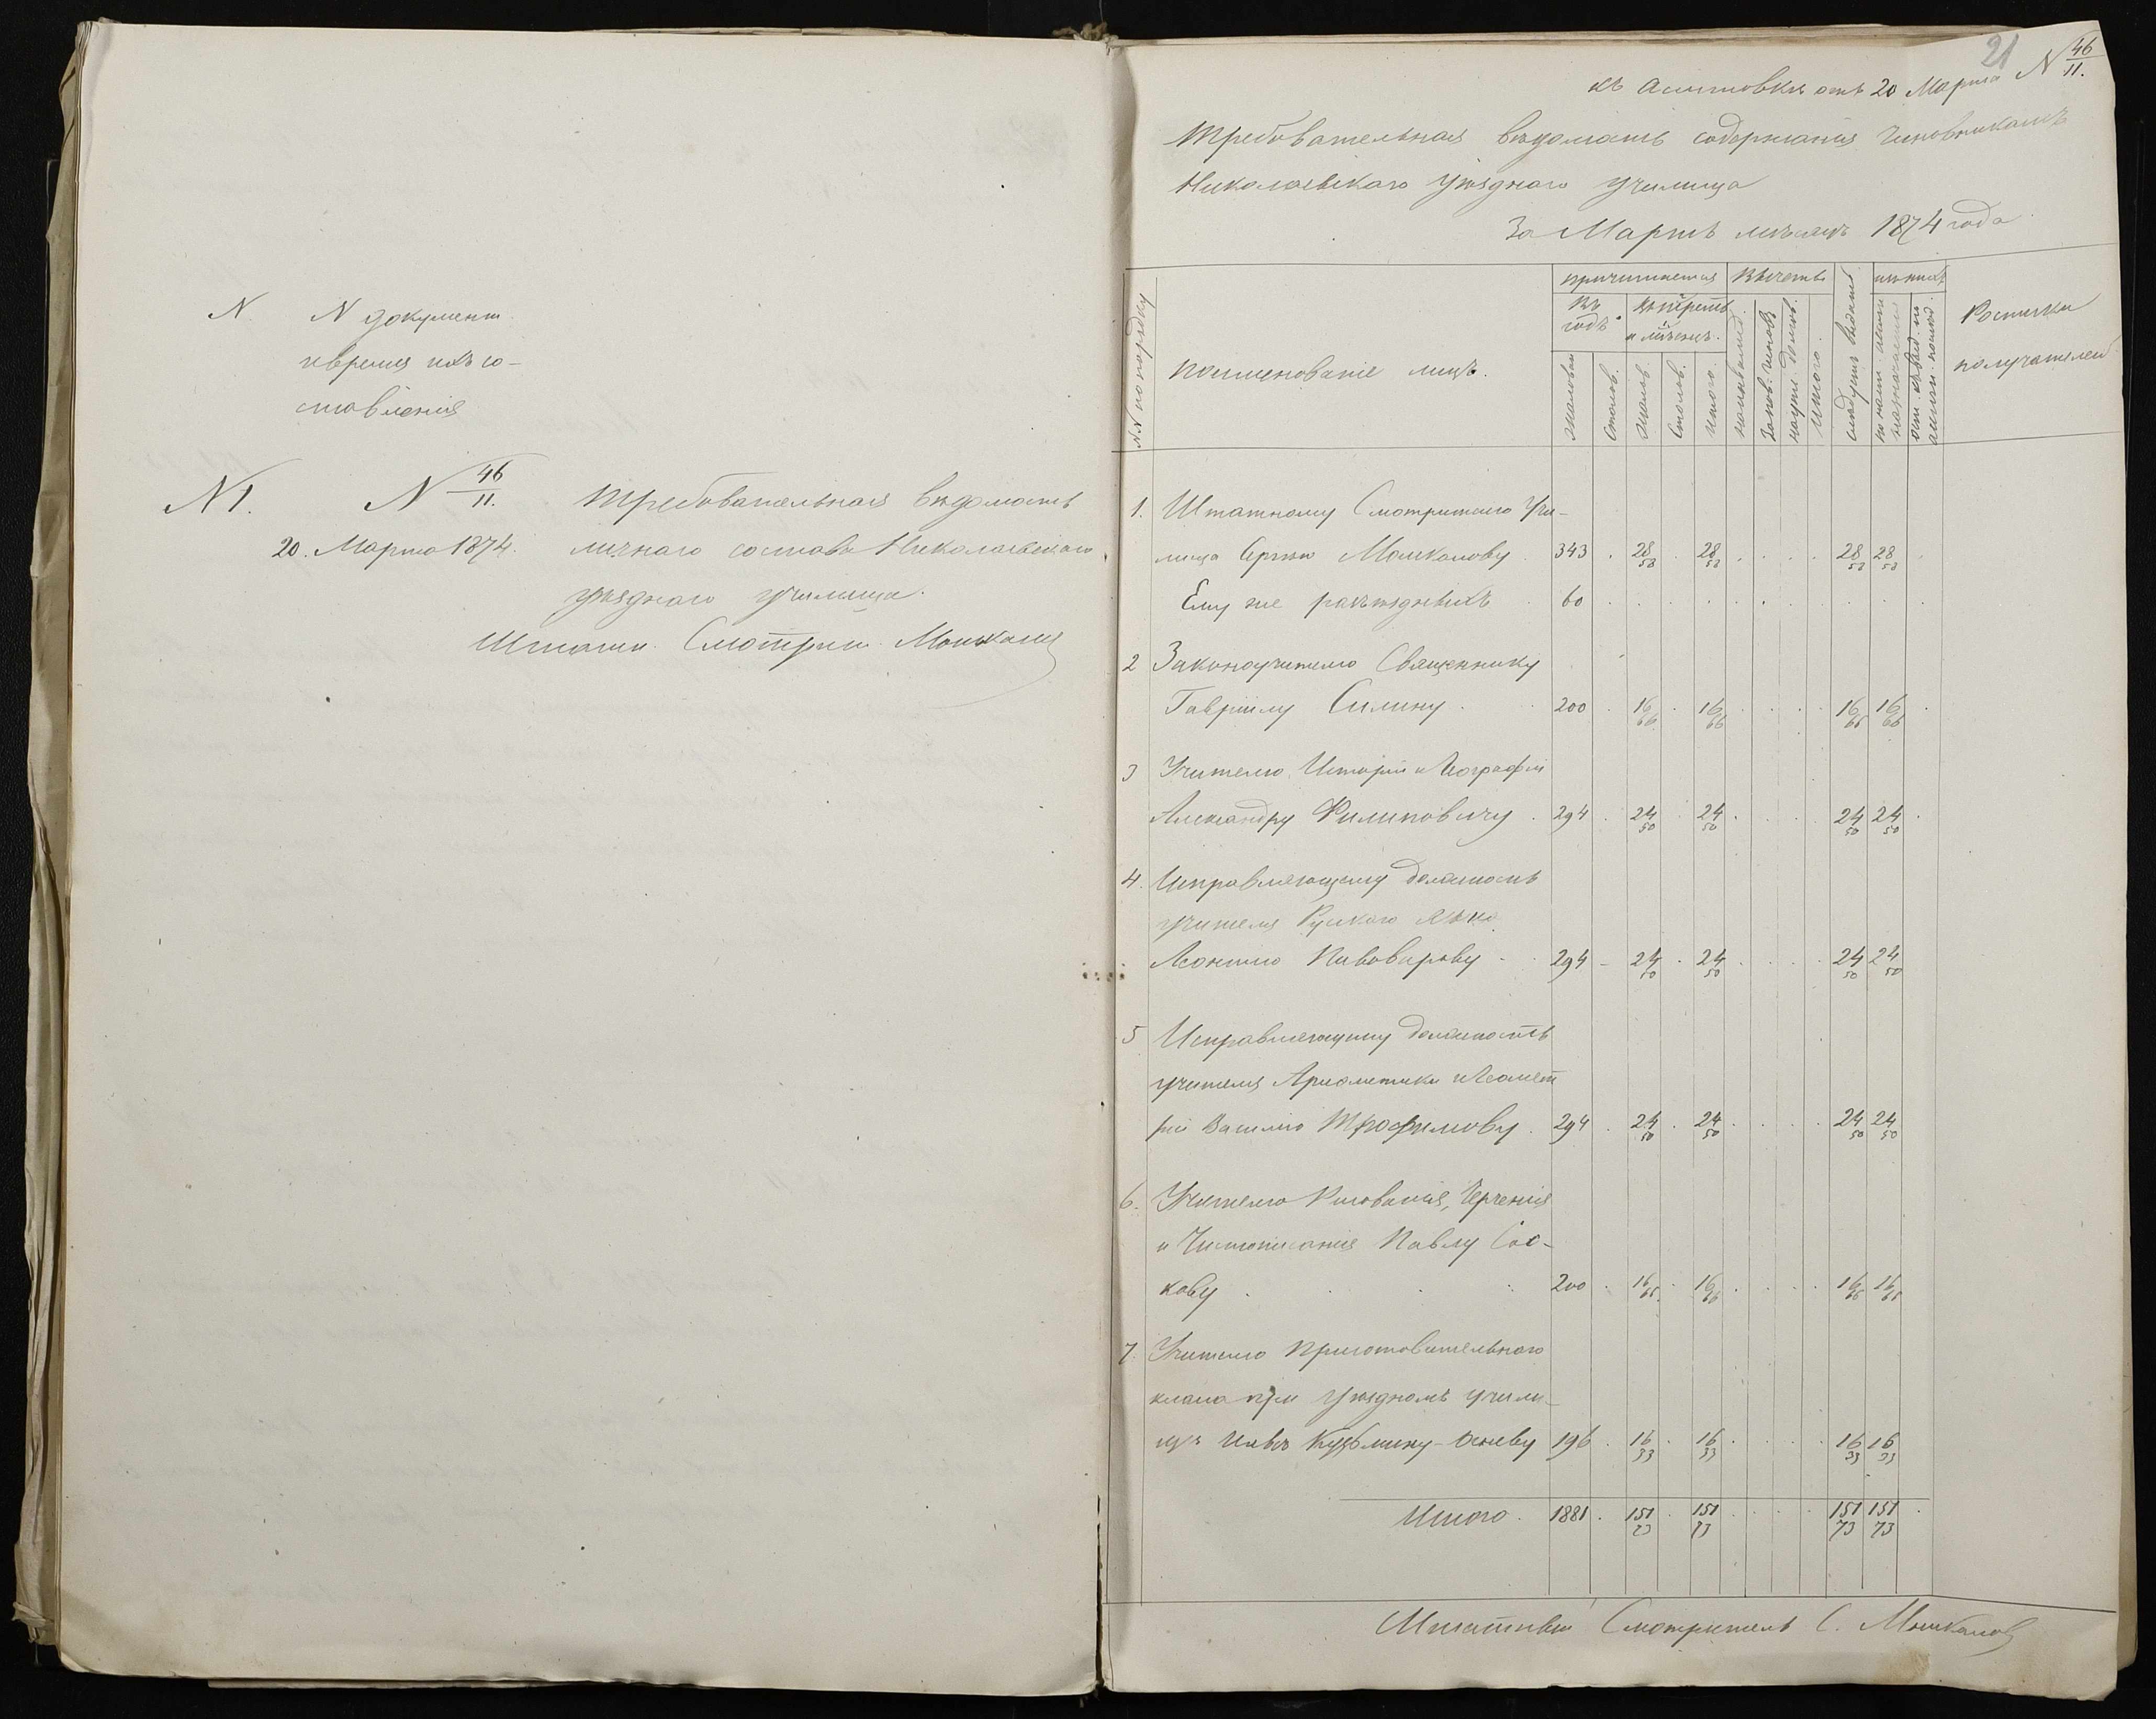 N N документ.
и время ихъ со-
ставленія
N 1. N 46/11. Требовательная вѣдомость
20. Марта 1874. личнаго состава Николаевскаго
уѣзднаго училища.
Штатн. Смотрит.
21
къ ассигновкѣ отъ 20 Марта N 46/11.
Требовательная вѣдомость содержанія Чиновникамъ
Николаевскаго Уѣзднаго училища
За Мартъ мѣсяцъ 1874 года.
NN по порядку
Поименованіе лицъ.
Причитается
Въ годъ
Жалован
Столов.
и мѣсяцъ.
Жалов.
Столов.
Итого.
Вычетъ
Итого.
Слѣдуетъ
изъ нихъ
Росписки
получателей
1. Штатному Смотрителю Учи-
лища Сергѣю Мошкалову 343 . 28 58 . 28 58 . . . . 28 58 28 58 .
Ему же разъѣздныхъ . 60
2 Законоучителю Священнику
Гавріилу Силину . 200 . 16 66 . 16 66 . . . . 16 66 16 66 .
3 Учителю Исторіи и Географіи
Александру Филиповичу . 294 . 24 50 . 24 50 . . . . 24 50 24 50 .
4. Исправляющему должность
учителя Рускаго языка
Леонтію Пивоварову . 294 - 24 50 . 24 50 . . . . 24 50 24 50
5 Исправляющему должность
учителя Ариѳметики и Геомет
ріи Василію Трофимову . 294 . 24 50 . 24 50 . . . . 24 50 24 50
6. Учителю Рисованія, Черченія
и Чистописанія Павлу Сос-
кову . 200 . 16 66 . 16 66 . . . . 16 66 16 66
7. Учителю Приготовительнаго
класа при Уѣздномъ учили-
щѣ 196 . 16 33 . 16 33 . . . . 16 33 16 33
Итого . 1881 . 151 73 . 151 73 . . . . 151 73 151 73 .
Штатный Смотритель С. Мошкалов